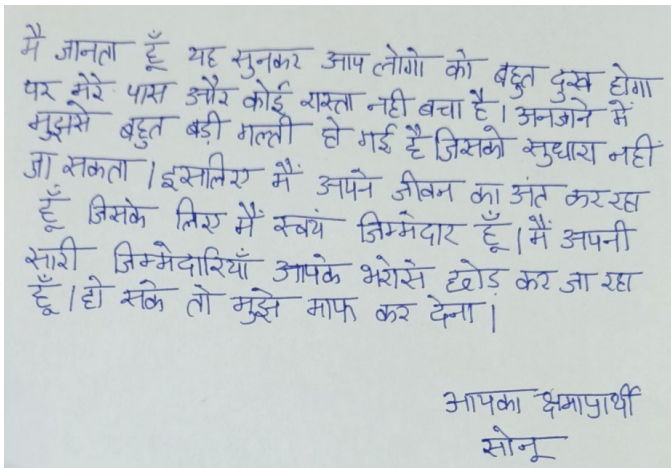 मै जानता हूँ यह सुनकर आप लोगो को बहुत दुख होगा
पर मेरे पास और कोई रास्ता नही बचा है। अनजाने में
मुझसे बहुत बड़ी गल्ती हो गई है जिसको सुधारा नहीं
जा सकता। इसलिए मैं अपने जीवन का अंत कर रहा
हूँ जिसके लिए मैं स्वयं जिम्मेदार हूँ। मैं अपनी
सारी जिम्मेदारियाँ आपके भरोसे छोड़ कर जा रहा
हूँ। हो सके तो मुझे माफ कर देना।
आपका क्षमाप्रार्थी
सोनू